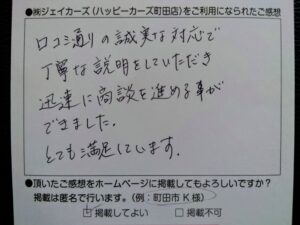 ●㈱ジェイカーズ(ハッピーカーズ町田店)をご利用になられたご感想
口コミ通りの誠実な対応で
丁寧な説明をしていただき
迅速に商談を進める事が
できました。
とても満足しています。
●頂いたご感想をホームページに掲載してもよろしいですか?
掲載は匿名で行います。(例:町田市K様)
☑掲載してよい □掲載不可